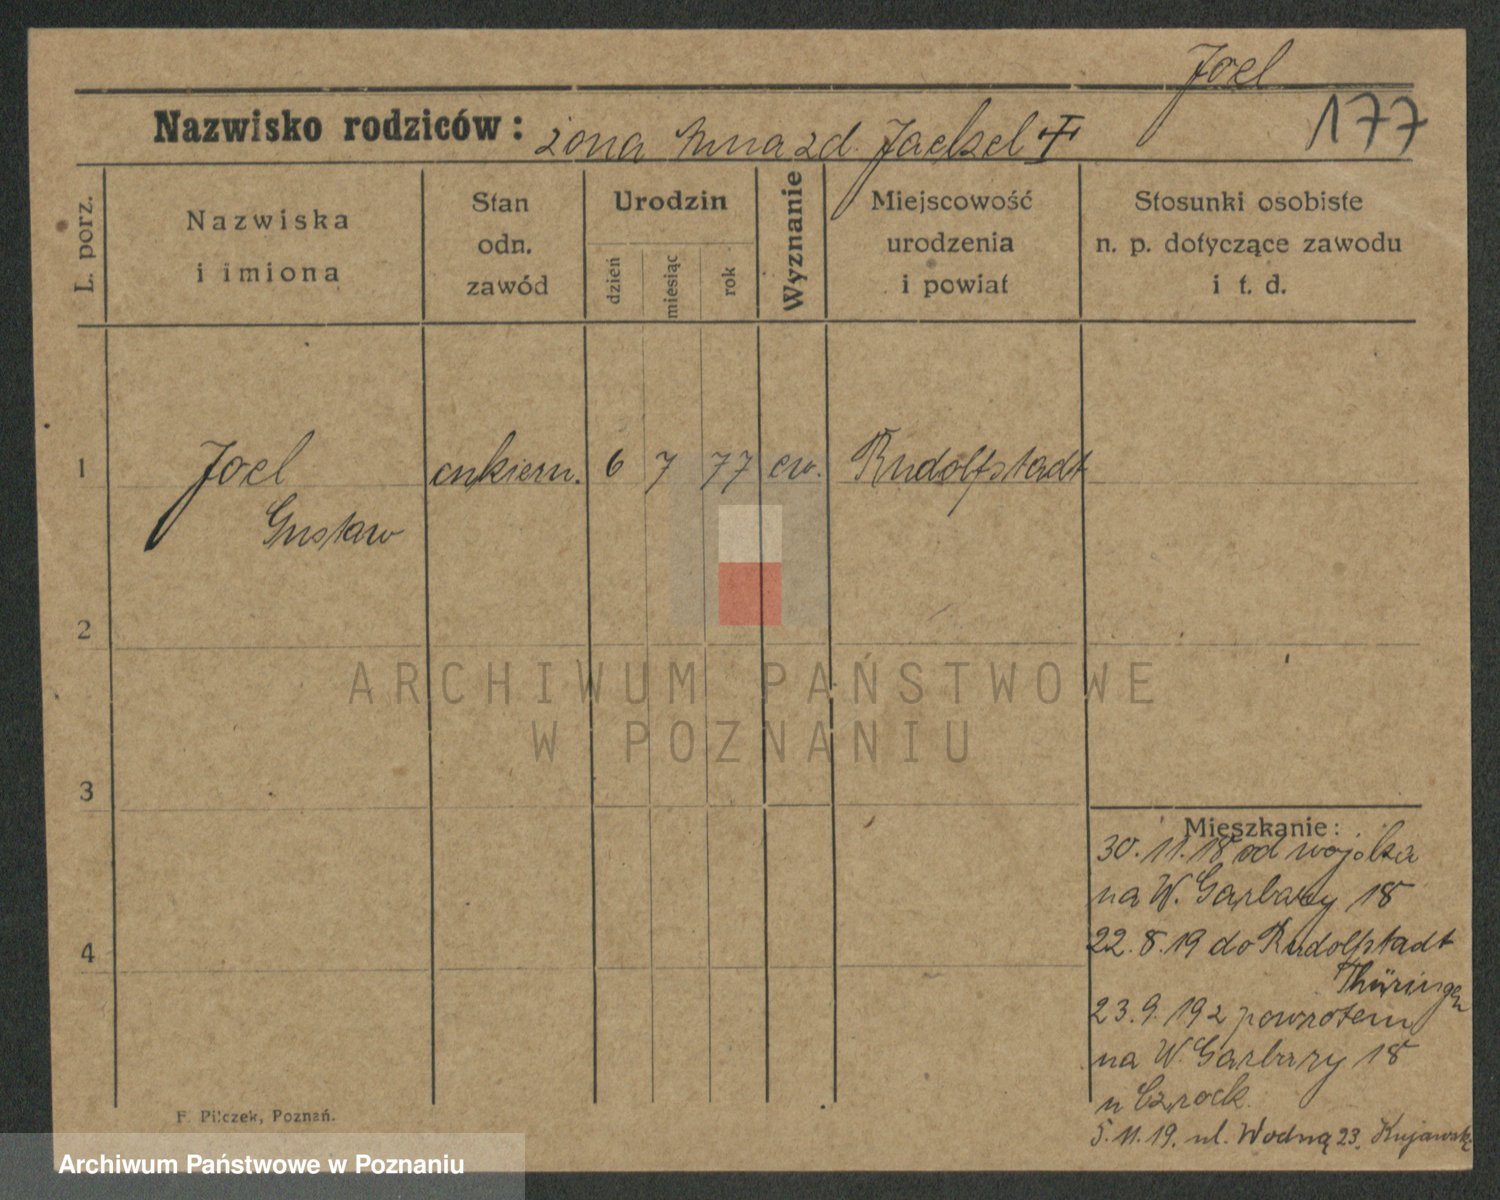 Joel
177
Nazwisko rodziców: żona Anna zd. Jaekel
L. porz.
Nazwiska i imiona
Stan odn. zawód
Urodzin
dzień
miesiąc
rok
Wyznanie
Miejscowość urodzenia i powiat
Stosunki osobiste n. p. dotyczące zawodu i t. d.
1 Joel cukiern. 6 7 77 ew. Rudolfstadt
Gustaw
2
3
4
ARCHIWUM PAŃSTWOWE
W POZNANIU
Mieszkanie:
30.11.18 od wojska
na W. Garbary 18
22.8.19 do Rudolfstadt
Thüringen
23.9.19 z powrotem
na W. Garbary 18
u Czrock
5.11.19. ul. Wodną 23.
F. Pilczek, Poznań.
Archiwum Państwowe w Poznaniu